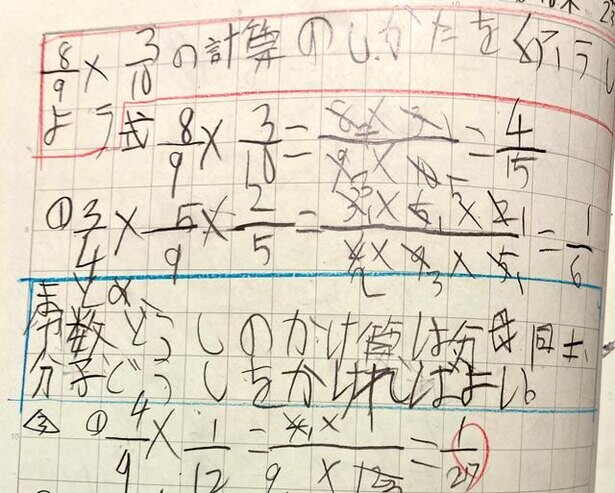 8/9 × 3/10 の計算のしかたを
よう 式 8/9 × 3/10 = 8×3/9×10 = 4/15
① 3/4 × 5/9 × 2/5 = 3×5×2/4×9×5 = 1/6
まとめ
分数どうしのかけ算は分母同士、
分子どうしをかければよい。
③ ① 4/9 × 1/12 = 4×1/9×12 = 1/27